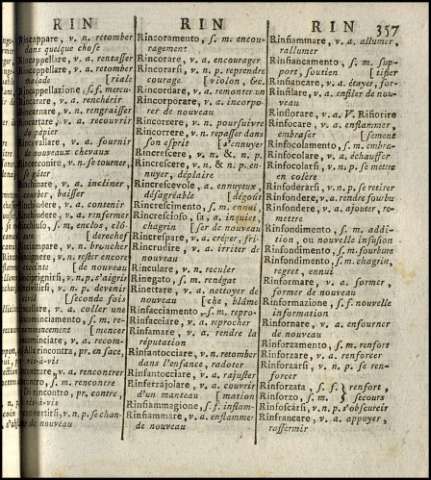 RIN
RIN
RIN
357
Rincappare, v. n. retomber
dans quelque chose
Rincappellare, v. n. rentasser
Rincappellare, v. n. retomber
malade [riale
Rincappellazione, s. f. mercu-
Rincarare, v. a. renchérir
Rincarnare, v. n. rengraisser
Rincartare, v. a. recouvrir
de papier
Rincavallare, v. a. fournir
de nouveaux chevaux
v. n. p. se tourner,
se gâter
Rinchinare, v. a. incliner
baisser
v. a. contenir
Rinchiudere, v. a. renfermer
s. m. enclos, clô-
Rinciampare, v. n. bruncher
v. n. rester encore
de nouveau
v. n. p. s'aigrir
v. n. p. devenir
civil [seconde fois
v. a. coller une
Rincominciamento, s. m. re-
mencement [mencer
Rincominciare, v. a. recom-
All rincontra, pr. en face,
vis-à-vis
Rincontrare, v. a. rencontrer
Rincontro, s. m. rencontre
Di rincontro, pr. contre,
vis-à-vis
v. n. p. se chan-
de nouveau
Rincoramento, s. m. encou-
ragement
Rincorare, v. a. encourager
Rincorarsi, v. n. p. reprendre
courage [violon, &c.
Rincordare, v. a. remonter un
Rincorporare, v. a. incorpo-
rer de nouveau
Rincorrere, v. n. poursuivre
Rincorrere, v. n. repasser dans
son esprit [s'ennuyer
Rincrescere, v. n. & n. p.
Rincrescere, v. n. & n. p. en-
nuyer, déplaire
Rincrescevole, a. ennuyeux
désagréable [dégoût
Rincrescimento, s. m. ennui,
Rincrescioso, sa, a. inquiet,
chagrin [ser de nouveau
Rincrespare, v. a. créper, fri-
Rincrudire, v. a. irriter de
nouveau
Rinculare, v. n. reculer
Rinegato, s. m. rendgat
Rinettare, v. a. nettoyer de
nouveau [che, blâme
Rinfacciamento, v. m. repro-
Rinfacciare, v. a. reprocher
Rinfamare, v. a. rendre la
réputation
Rinfantocciare, v. n. retomber
dans l'enfance, radoter
Rinfantocciare, v. a. rajuster
Rinferrajolare, v. a. couvrir
d'un manteau [mation
Rinfiammagione, s. f. inflam-
Rinfiammare, v. a. enflammer
de nouveau
Rinfiammare, v. a. allumer,
rallumer
Rinfiancamento, s. m. sup-
port, soutien [tifier
Rinfiancare, v. a. étayer, for-
Rinfilare, v. a. enfiler de nou-
veau
Rinfiorare, v. a. V. Rifiorire
Rinfocare, v. a. enflammer,
embraser [sement
Rinfocolamento, s. m. embra-
Rinfocolare, v. a. échauffer
Rinfocolarsi, v. n. p. se mettre
en colère
Rinfoderarsi, v. n. p. se retirer
Rinfondere, v. a. rendre fourbu
Rinfondere, v. a. ajouter, re-
mettre
Rinfondimento, s. m. addi-
tion, ou nouvelle infusion
Rinfondimento, s. m. fourbure
Rinfondimento, s. m. chagrin,
regret, ennui
Rinformare, v. a. former,
former de nouveau
Rinformazione, s. f. nouvelle
information
Rinfornare, v. a. enfourner
de nouveau
Rinforzamento, s. m. renfort
Rinforzare, v. a. renforcer
Rinforzarsi, v. n. p. se ren-
forcer
Rinforzata, s. f. } renfort,
Rinforzo, s. m. } secours
Rinfoscarsi, v. n. p. s'obscurcir
Rinfrancare, v. a. appuyer,
raffermir